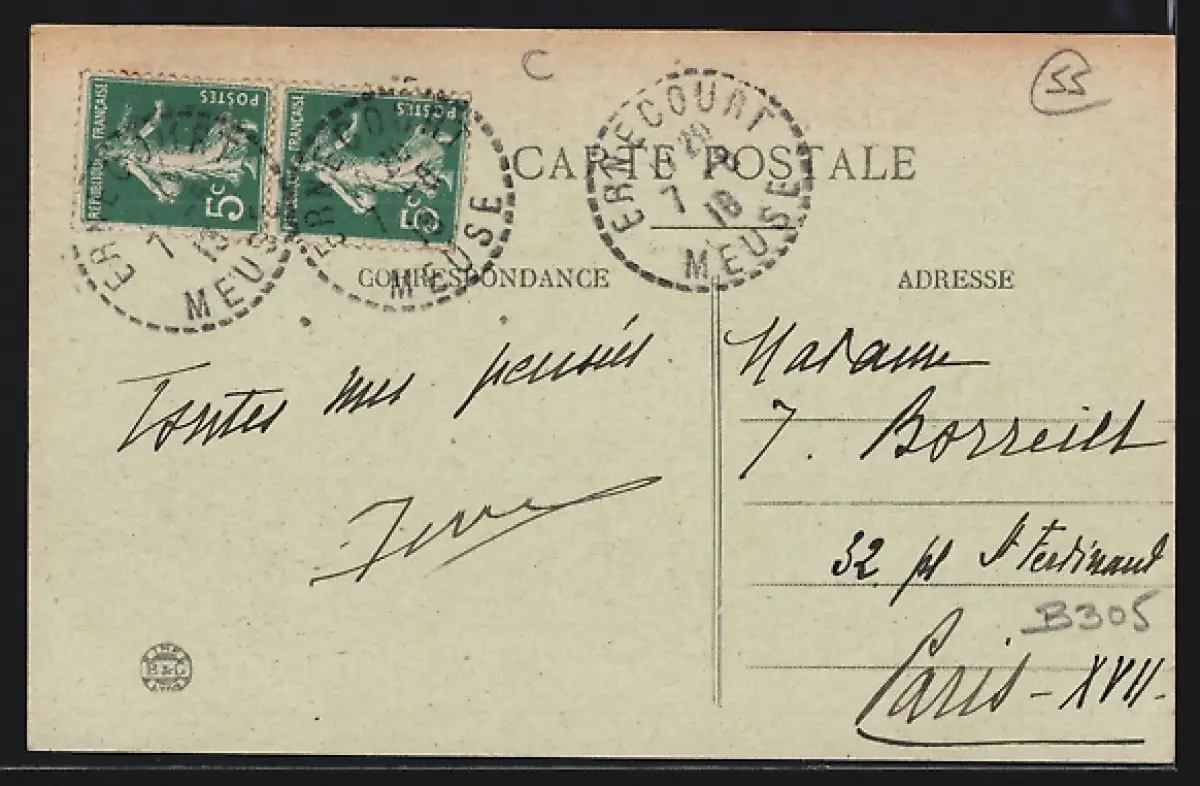 C
55
RÉPUBLIQUE FRANÇAISE
POSTES
5c
RÉPUBLIQUE FRANÇAISE
POSTES
5c
ERNECOURT
MEUSE
ERNECOURT
MEUSE
ERNECOURT
7
18
MEUSE
CARTE POSTALE
CORRESPONDANCE
ADRESSE
Toutes mes pensées
Madame
7. Borreill
32 pl St Ferdinand
B305
Paris - XVII -
B & G